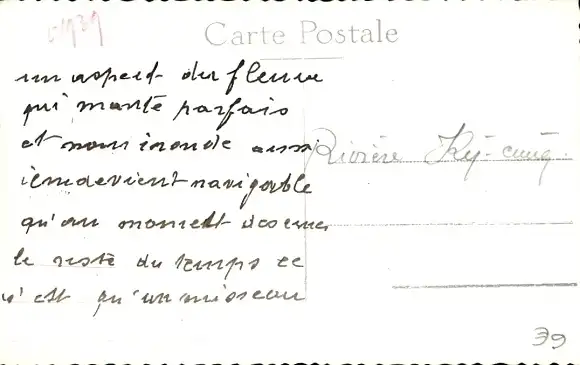 1939
Carte Postale
un aspect du fleuve
qui monte parfois
et nous inonde aussi
il ne devient navigable
qu'au moment des crues
le reste du temps ce
n'est qu'un ruisseau
Rivière Ky-cùng.
39